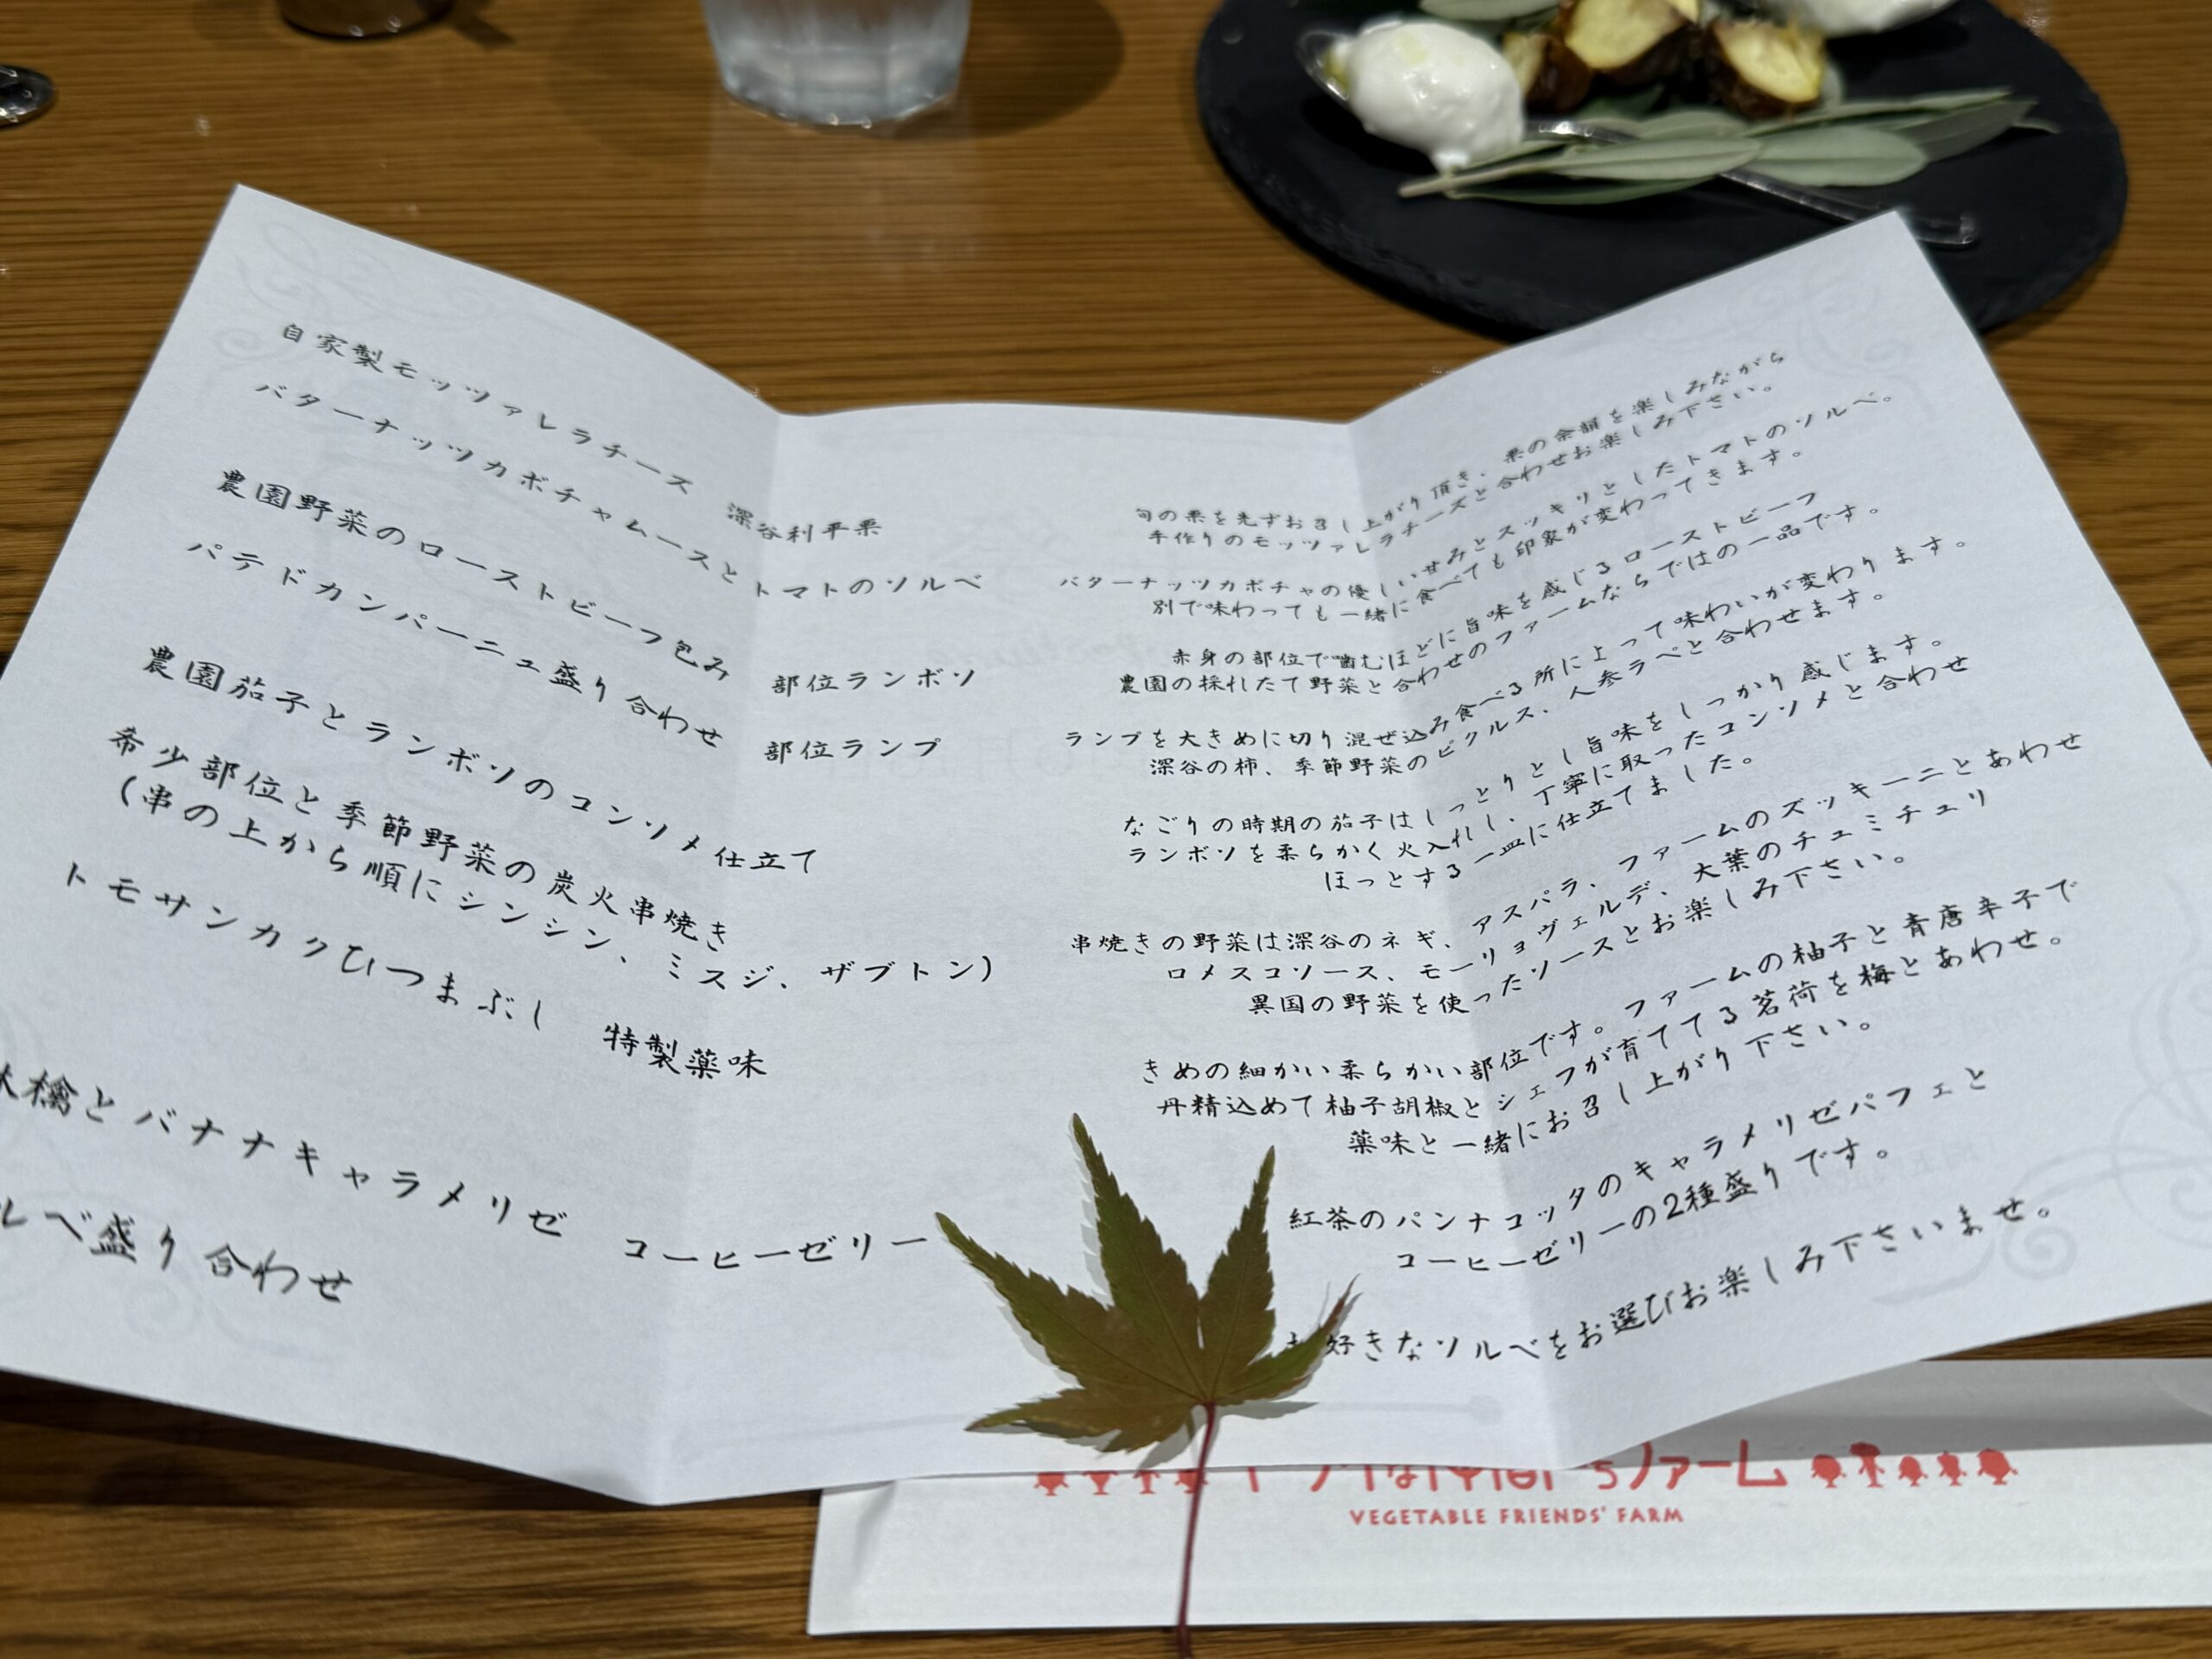 自家製モッツァレラチーズ 深谷利平栗
バターナッツカボチャムースとトマトのソルベ
農園野菜のローストビーフ包み 部位ランボソ
パテドカンパーニュ盛り合わせ 部位ランプ
農園茄子とランボソのコンソメ仕立て
希少部位と季節野菜の炭火串焼き
(串の上から順にシンシン、ミスジ、ザブトン)
トモサンカクひつまぶし 特製薬味
檎とバナナキャラメリゼ コーヒーゼリー
ルベ盛り合わせ
旬の栗を先ずお召し上がり頂き、栗の余韻を楽しみながら
手作りのモッツァレラチーズと合わせお楽しみ下さい。
バターナッツカボチャの優しい甘みとスッキリとしたトマトのソルベ。
別で味わっても一緒に食べても印象が変わってきます。
赤身の部位で噛むほどに旨味を感じるローストビーフ
農園の採れたて野菜と合わせのファームならではの一品です。
ランプを大きめに切り混ぜ込み食べる所によって味わいが変わります。
深谷の柿、季節野菜のピクルス、人参ラペと合わせます。
なごりの時期の茄子はしっとりとし旨味をしっかり感じます。
ランボソを柔らかく火入れし、丁寧に取ったコンソメと合わせ
ほっとする一皿に仕立てました。
串焼きの野菜は深谷のネギ、アスパラ、ファームのズッキーニとあわせ
ロメスコソース、モーリョヴェルデ、大葉のチュミチュリ
異国の野菜を使ったソースとお楽しみ下さい。
きめの細かい柔らかい部位です。ファームの柚子と青唐辛子で
丹精込めて柚子胡椒とシェフが育ててる茗荷を梅とあわせ。
薬味と一緒にお召し上がり下さい。
紅茶のパンナコッタのキャラメリゼパフェと
コーヒーゼリーの2種盛りです。
好きなソルベをお選びお楽しみ下さいませ。
ファーム
VEGETABLE FRIENDS' FARM